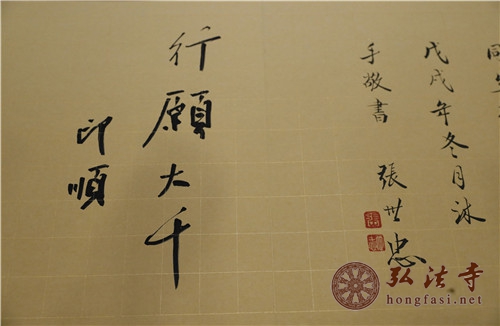 戊戌年冬月沐
手敬書 張世忠
行願大千
印順
弘法寺
hongfasi.net